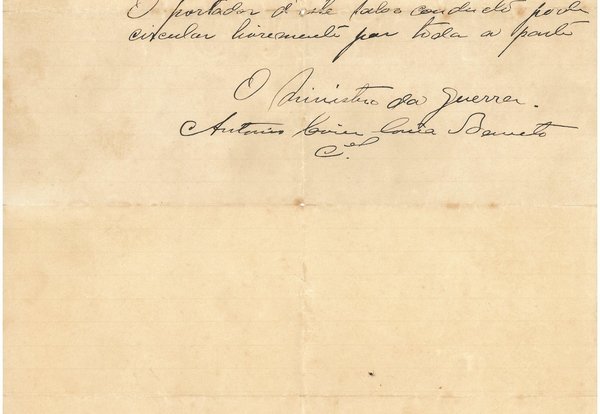 O portador d'este salvo conducto pode
circular livremente por toda a parte
O Ministro da Guerra.
Antonio Xavier Correia Barreto
Cel.